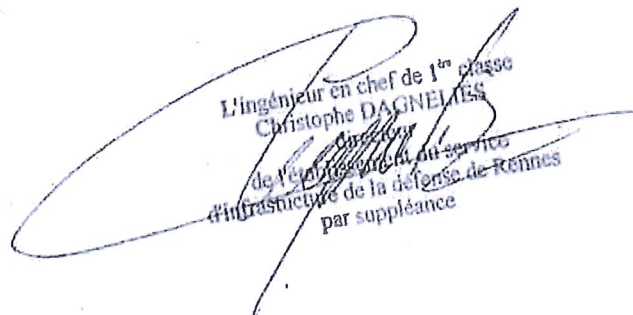 L'ingénieur en chef de 1ère classe
Christophe DAGNELIES
directeur
de l'établissement du service
d'infrastructure de la défense de Rennes
par suppléance